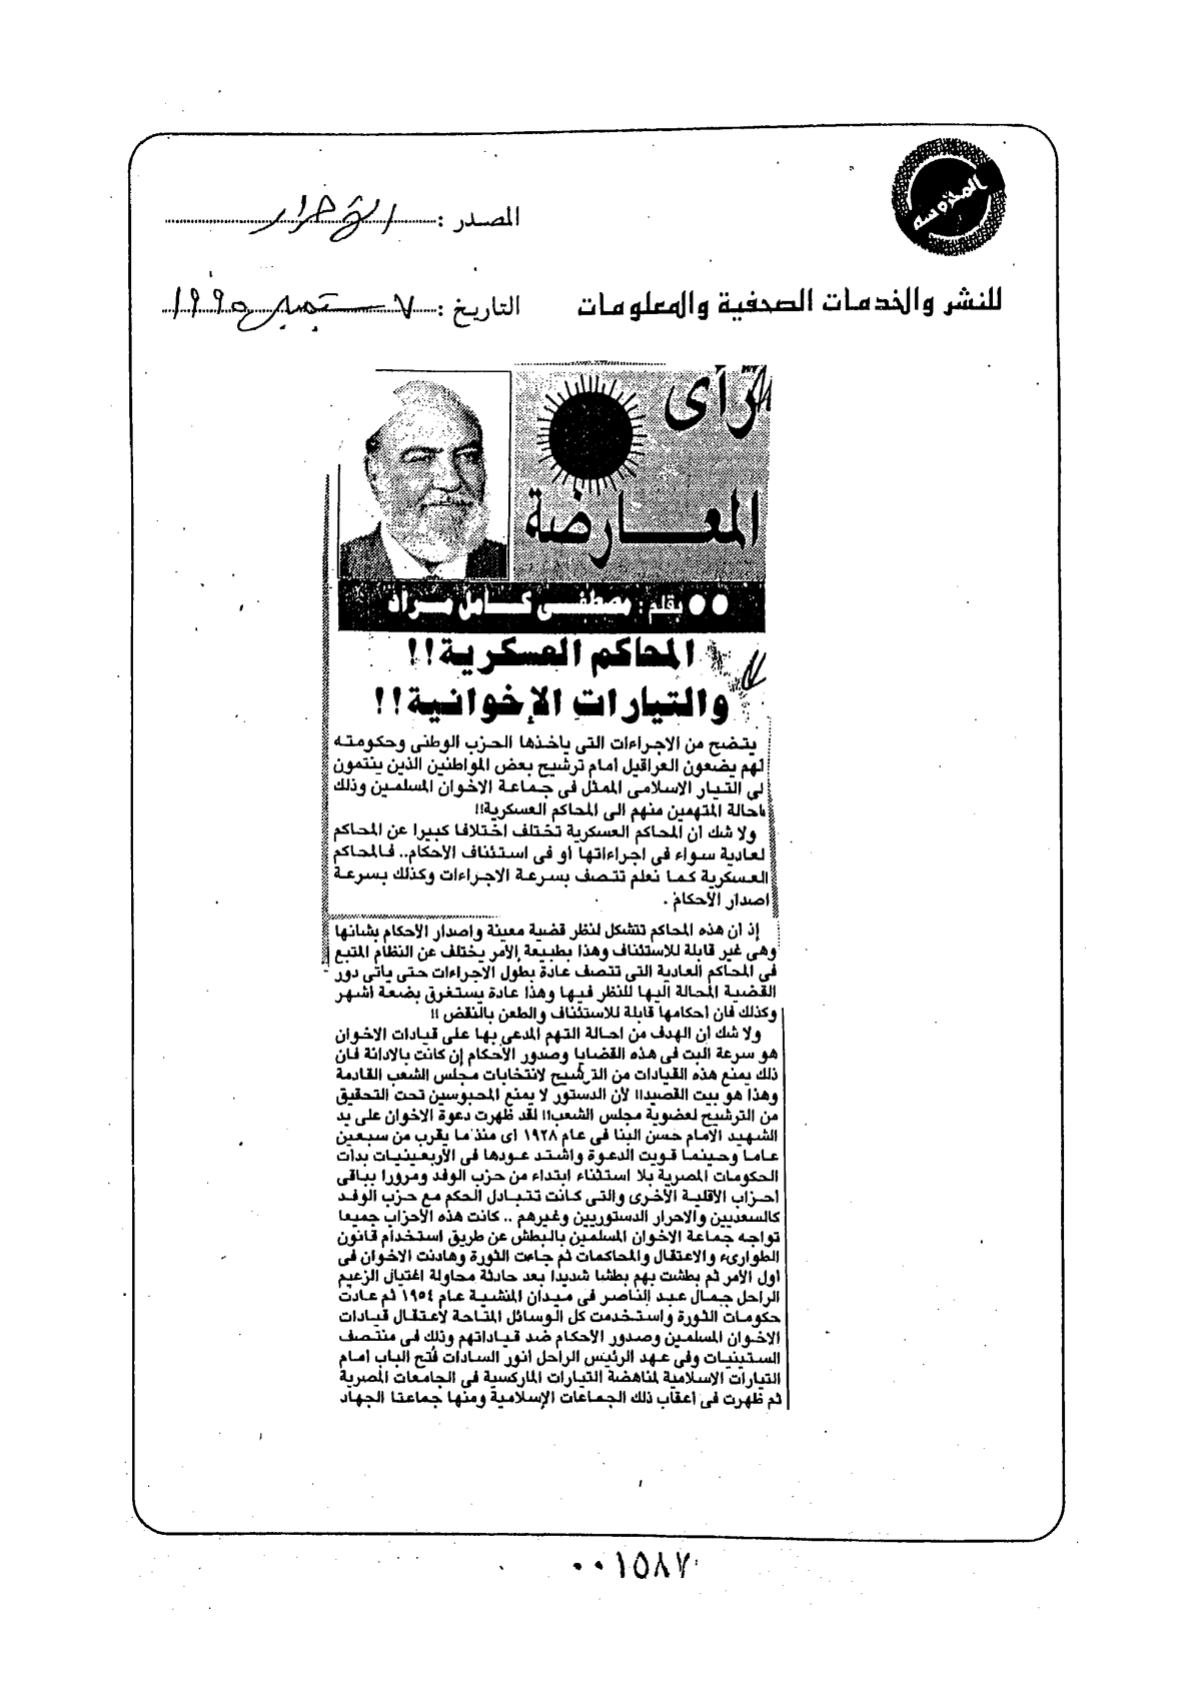 المحروسة
المصدر : الأحرار
للنشر والخدمات الصحفية والمعلومات
التاريخ : ٧ سبتمبر ١٩٩٥
رأى
المعارضة
●● بقلم : مصطفى كامل مراد
المحاكم العسكرية !!
والتيارات الإخوانية !!
يتضح من الاجراءات التى ياخذها الحزب الوطنى وحكومته
لهم يضعون العراقيل امام ترشيح بعض المواطنين الذين ينتمون
لى التيار الاسلامى الممثل فى جماعة الاخوان المسلمين وذلك
باحالة المتهمين منهم الى المحاكم العسكرية!!
ولا شك ان المحاكم العسكرية تختلف اختلافا كبيرا عن المحاكم
لعادية سواء فى اجراءاتها أو فى استئناف الاحكام.. فالمحاكم
العسكرية كما نعلم تتصف بسرعة الاجراءات وكذلك بسرعة
اصدار الأحكام .
إذ ان هذه المحاكم تتشكل لنظر قضية معينة وإصدار الأحكام بشانها
وهى غير قابلة للاستئناف وهذا بطبيعة الأمر يختلف عن النظام المتبع
فى المحاكم العادية التى تتصف عادة بطول الاجراءات حتى ياتى دور
القضية المحالة اليها للنظر فيها وهذا عادة يستغرق بضعة اشهر
وكذلك فان احكامها قابلة للاستئناف والطعن بالنقض !!
ولا شك ان الهدف من احالة التهم المدعى بها على قيادات الاخوان
هو سرعة البت فى هذه القضايا وصدور الأحكام إن كانت بالادانة فان
ذلك يمنع هذه القيادات من الترشيح لانتخابات مجلس الشعب القادمة
وهذا هو بيت القصيد!! لأن الدستور لا يمنع المحبوسين تحت التحقيق
من الترشيح لعضوية مجلس الشعب!! لقد ظهرت دعوة الاخوان على يد
الشهيد الامام حسن البنا فى عام ١٩٢٨ اى منذ ما يقرب من سبعين
عاما وحينما قويت الدعوة واشتد عودها فى الأربعينيات بدأت
الحكومات المصرية بلا استثناء ابتداء من حزب الوفد ومرورا بباقى
احزاب الاقلية الأخرى والتى كانت تتبادل الحكم مع حزب الوفد
كالسعديين والاحرار الدستوريين وغيرهم .. كانت هذه الأحزاب جميعا
تواجه جماعة الاخوان المسلمين بالبطش عن طريق استخدام قانون
الطوارىء والاعتقال والمحاكمات ثم جاءت الثورة وهادنت الاخوان فى
أول الأمر ثم بطشت بهم بطشا شديدا بعد حادثة محاولة اغتيال الزعيم
الراحل جمال عبد الناصر فى ميدان المنشية عام ١٩٥٤ ثم عادت
حكومات الثورة واستخدمت كل الوسائل المتاحة لاعتقال قيادات
الاخوان المسلمين وصدور الاحكام ضد قياداتهم وذلك فى منتصف
الستينيات وفى عهد الرئيس الراحل أنور السادات فُتح الباب امام
التيارات الاسلامية لمناهضة التيارات الماركسية فى الجامعات المصرية
ثم ظهرت فى اعقاب ذلك الجماعات الإسلامية ومنها جماعتا الجهاد
٠٠١٥٨٧